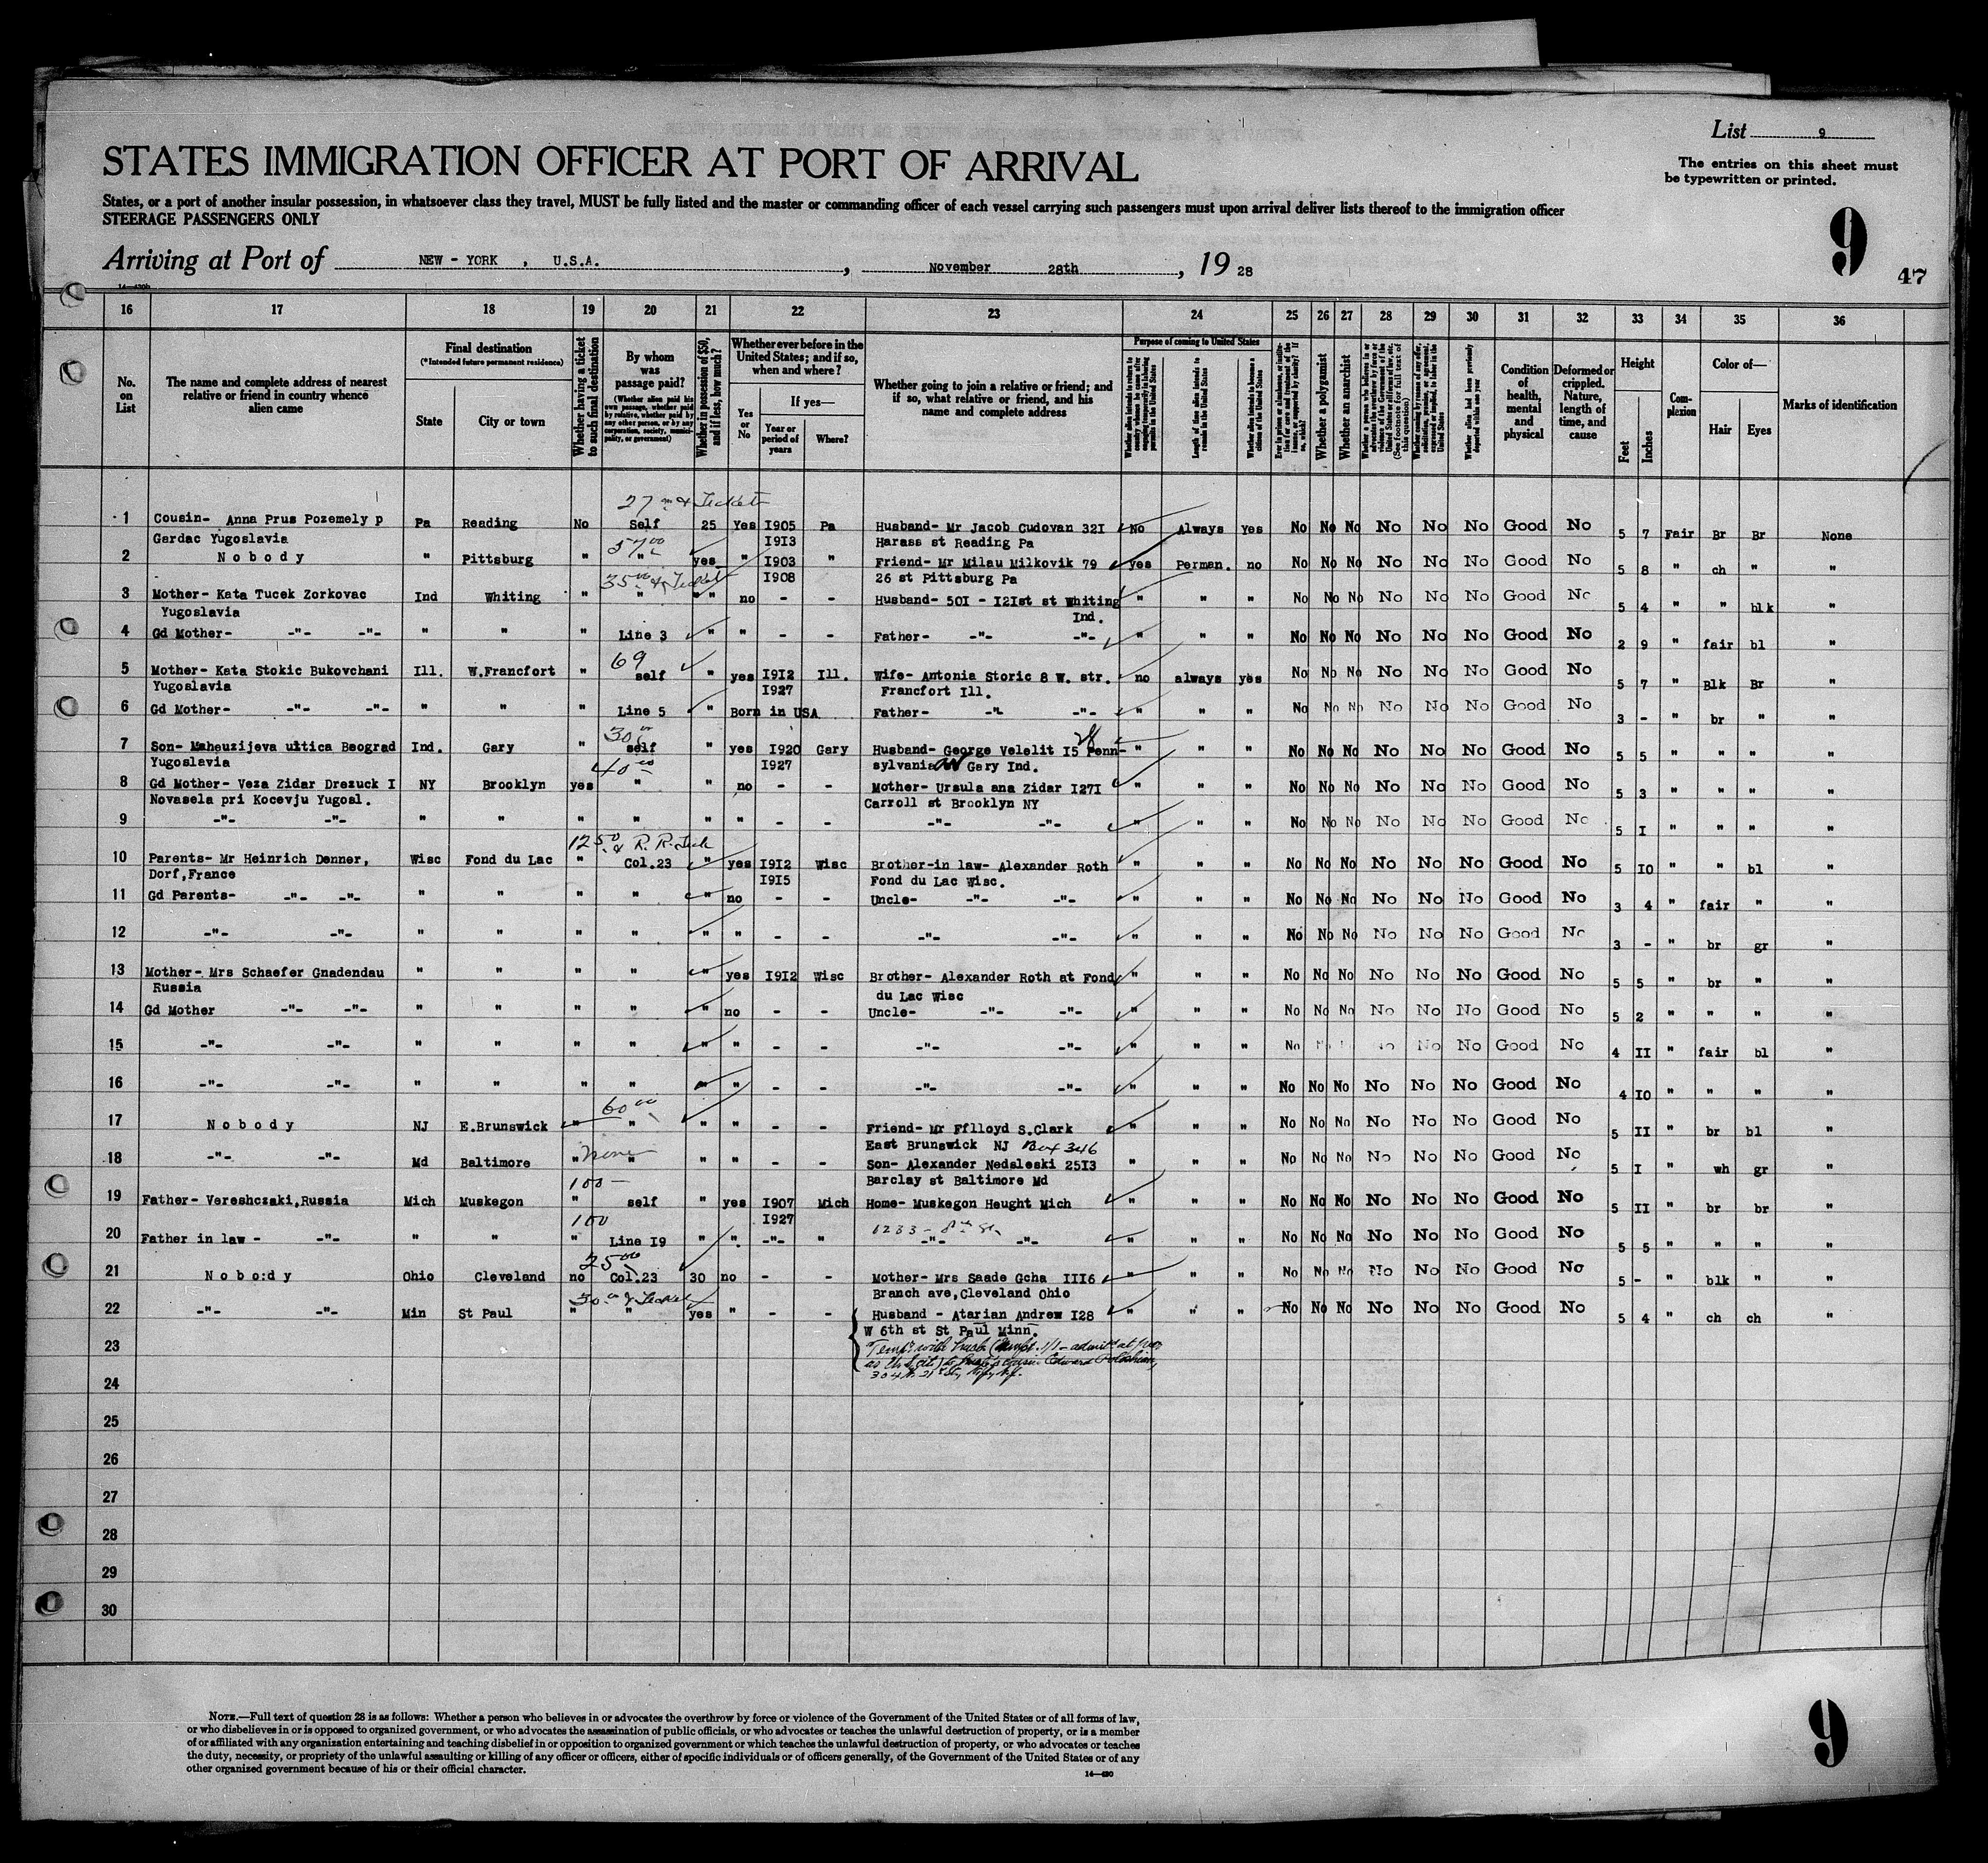 List 9
STATES IMMIGRATION OFFICER AT PORT OF ARRIVAL
The entries on this sheet must
be typewritten or printed.
States, or a port of another insular possession, in whatsoever class they travel, MUST be fully listed and the master or commanding officer of each vessel carrying such passengers must upon arrival deliver lists thereof to the immigration officer
STEERAGE PASSENGERS ONLY
9
47
Arriving at Port of NEW - YORK , U.S.A. , November 28th , 19 28
16 17 18 19 20 21 22 23 24 25 26 27 28 29 30 31 32 33 34 35 36
No. on List
The name and complete address of nearest relative or friend in country whence alien came
Final destination
(*Intended future permanent residence)
State
City or town
Whether having a ticket to such final destination
By whom was passage paid?
(Whether alien paid his own passage, whether paid by relative, whether paid by any other person, or by any corporation, society, municipality, or government)
Whether in possession of $50, and if less, how much?
Whether ever before in the United States; and if so, when and where?
Yes or No
If yes—
Year or period of years
Where?
Whether going to join a relative or friend; and if so, what relative or friend, and his name and complete address
Purpose of coming to United States
Length of time alien intends to remain in the United States
Whether alien intends to become a citizen of the United States
Whether a polygamist
Whether an anarchist
Condition of health, mental and physical
Deformed or crippled. Nature, length of time, and cause
Height
Feet
Inches
Complexion
Color of—
Hair
Eyes
Marks of identification
27 00 & Tickets
1 Cousin- Anna Prus Pozemely p Pa Reading No Self 25 Yes I905 Pa Husband- Mr Jacob Cudovan 32I No Always Yes No No No No No No Good No 5 7 Fair Br Br None
Gardac Yugoslavia I9I3 Harass st Reading Pa
57 00
2 Nobody " Pittsburg " " yes " I903 " Friend- Mr Milau Milkovik 79 yes Perman. no No No No No No No Good No 5 8 " ch " "
I908 26 st Pittsburg Pa
35 00 & Ticket
3 Mother- Kata Tucek Zorkovac Ind Whiting " " " no - - Husband- 50I - I2Ist st Whiting " " " No No No No No No Good No 5 4 " " blk "
Yugoslavia Ind.
4 Gd Mother- -"- -"- " " " Line 3 " " - - Father- -"- -"- " " " No No No No No No Good No 2 9 " fair bl "
69
5 Mother- Kata Stokic Bukovchani Ill. W.Francfort " self " yes I9I2 Ill. Wife- Antonia Storic 8 W. str. no always yes No No No No No No Good No 5 7 " Blk Br "
Yugoslavia I927 Francfort Ill.
6 Gd Mother- -"- -"- " " " Line 5 " Born in USA Father- -"- -"- " " " No No No No No No Good No 3 - " br " "
30 00
7 Son- Maheuzijeva ultica Beograd Ind. Gary " self " yes I920 Gary Husband- George Velelit I5 Penn- " " " No No No No No No Good No 5 5 " " " "
Yugoslavia I927 sylvania av Gary Ind.
40 00
8 Gd Mother- Veza Zidar Drezuck I NY Brooklyn yes " " no - - Mother- Ursula ana Zidar I27I " " " No No No No No No Good No 5 3 " " " "
Novasela pri Kocevju Yugosl. Carroll st Brooklyn NY
9 -"- -"- " " " " " " - - -"- -"- " " " No No No No No No Good No 5 I " " " "
125 00 & R.R. Tick
10 Parents- Mr Heinrich Denner, Wisc Fond du Lac " Col.23 " yes I9I2 Wisc Brother-in law- Alexander Roth " " " No No No No No No Good No 5 IO " " bl "
Dorf,France I9I5 Fond du Lac Wisc.
11 Gd Parents- -"- -"- " " " " " no - - Uncle- -"- -"- " " " No No No No No No Good No 3 4 " fair " "
12 -"- -"- " " " " " " - - -"- -"- " " " No No No No No No Good No 3 - " br gr "
13 Mother- Mrs Schaefer Gnadendau " " " " " yes I9I2 Wisc Brother- Alexander Roth at Fond " " " No No No No No No Good No 5 5 " br " "
Russia du Lac Wisc
14 Gd Mother -"- -"- " " " " " no - - Uncle- -"- -"- " " " No No No No No No Good No 5 2 " " " "
15 -"- -"- " " " " " " - - -"- -"- " " " No No No Good No 4 II " fair bl "
16 -"- -"- " " " " " " - - -"- -"- " " " No No No No No No Good No 4 IO " " " "
60 00
17 Nobody NJ E.Brunswick " " " " - - Friend- Mr Fflloyd S.Clark " " " No No No No No No Good No 5 II " br bl "
East Brunswick NJ Box 346
None
18 -"- -"- Md Baltimore " " " " - - Son- Alexander Nedsleski 25I3 " " " No No No No No No Good No 5 I " wh gr "
Barclay st Baltimore Md
100 —
19 Father- Vereshczaki,Russia Mich Muskegon " self " yes I907 Mich Home- Muskegon Heught Mich " " " No No No No No No Good No 5 II " br br "
I927 1233 - 8th St.
100
20 Father in law - -"- " " " Line I9 " " -"- " -"- -"- " " " No No No No No No Good No 5 5 " " " "
25 00
21 Nobo:dy Ohio Cleveland no Col.23 30 no - - Mother- Mrs Saade Gcha III6 " " " No No No No No No Good No 5 - " blk " "
Branch ave,Cleveland Ohio
50 00 & Ticket
22 -"- -"- Min St Paul " " yes " - - Husband - Atarian Andrew I28 " " " No No No No No No Good No 5 4 " ch ch "
W 6th st St Paul Minn.
23
24
25
26
27
28
29
30
NOTE.—Full text of question 28 is as follows: Whether a person who believes in or advocates the overthrow by force or violence of the Government of the United States or of all forms of law,
or who disbelieves in or is opposed to organized government, or who advocates the assassination of public officials, or who advocates or teaches the unlawful destruction of property, or is a member
of or affiliated with any organization entertaining and teaching disbelief in or opposition to organized government or which teaches the unlawful destruction of property, or who advocates or teaches
the duty, necessity, or propriety of the unlawful assaulting or killing of any officer or officers, either of specific individuals or of officers generally, of the Government of the United States or of any
other organized government because of his or their official character.
14—430
9